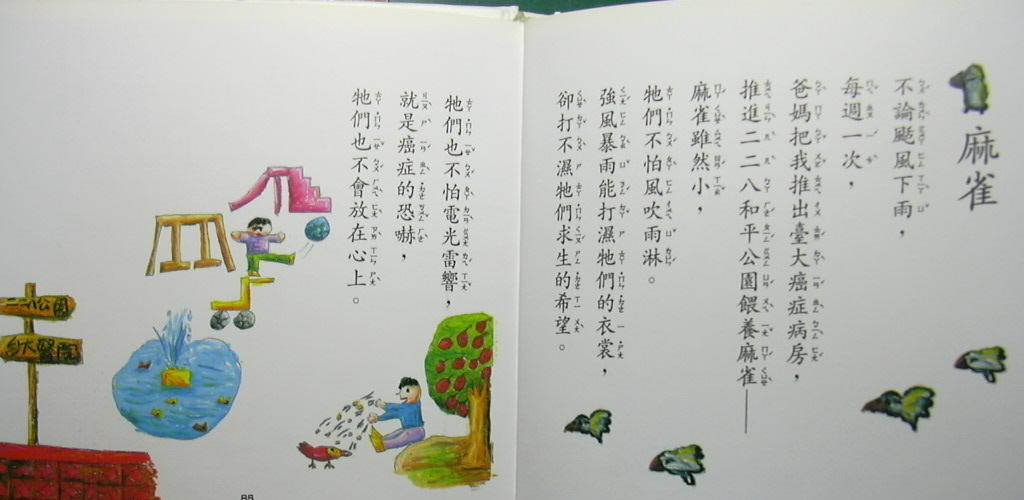 麻雀
不論颳風下雨，
每週一次，
爸媽把我推出臺大癌症病房，
推進二二八和平公園餵養麻雀——
麻雀雖然小，
牠們不怕風吹雨淋。
強風暴雨能打濕牠們的衣裳，
卻打不濕牠們求生的希望。
牠們也不怕電光雷響，
就是癌症的恐嚇，
牠們也不會放在心上。
二二八公園
台大醫院